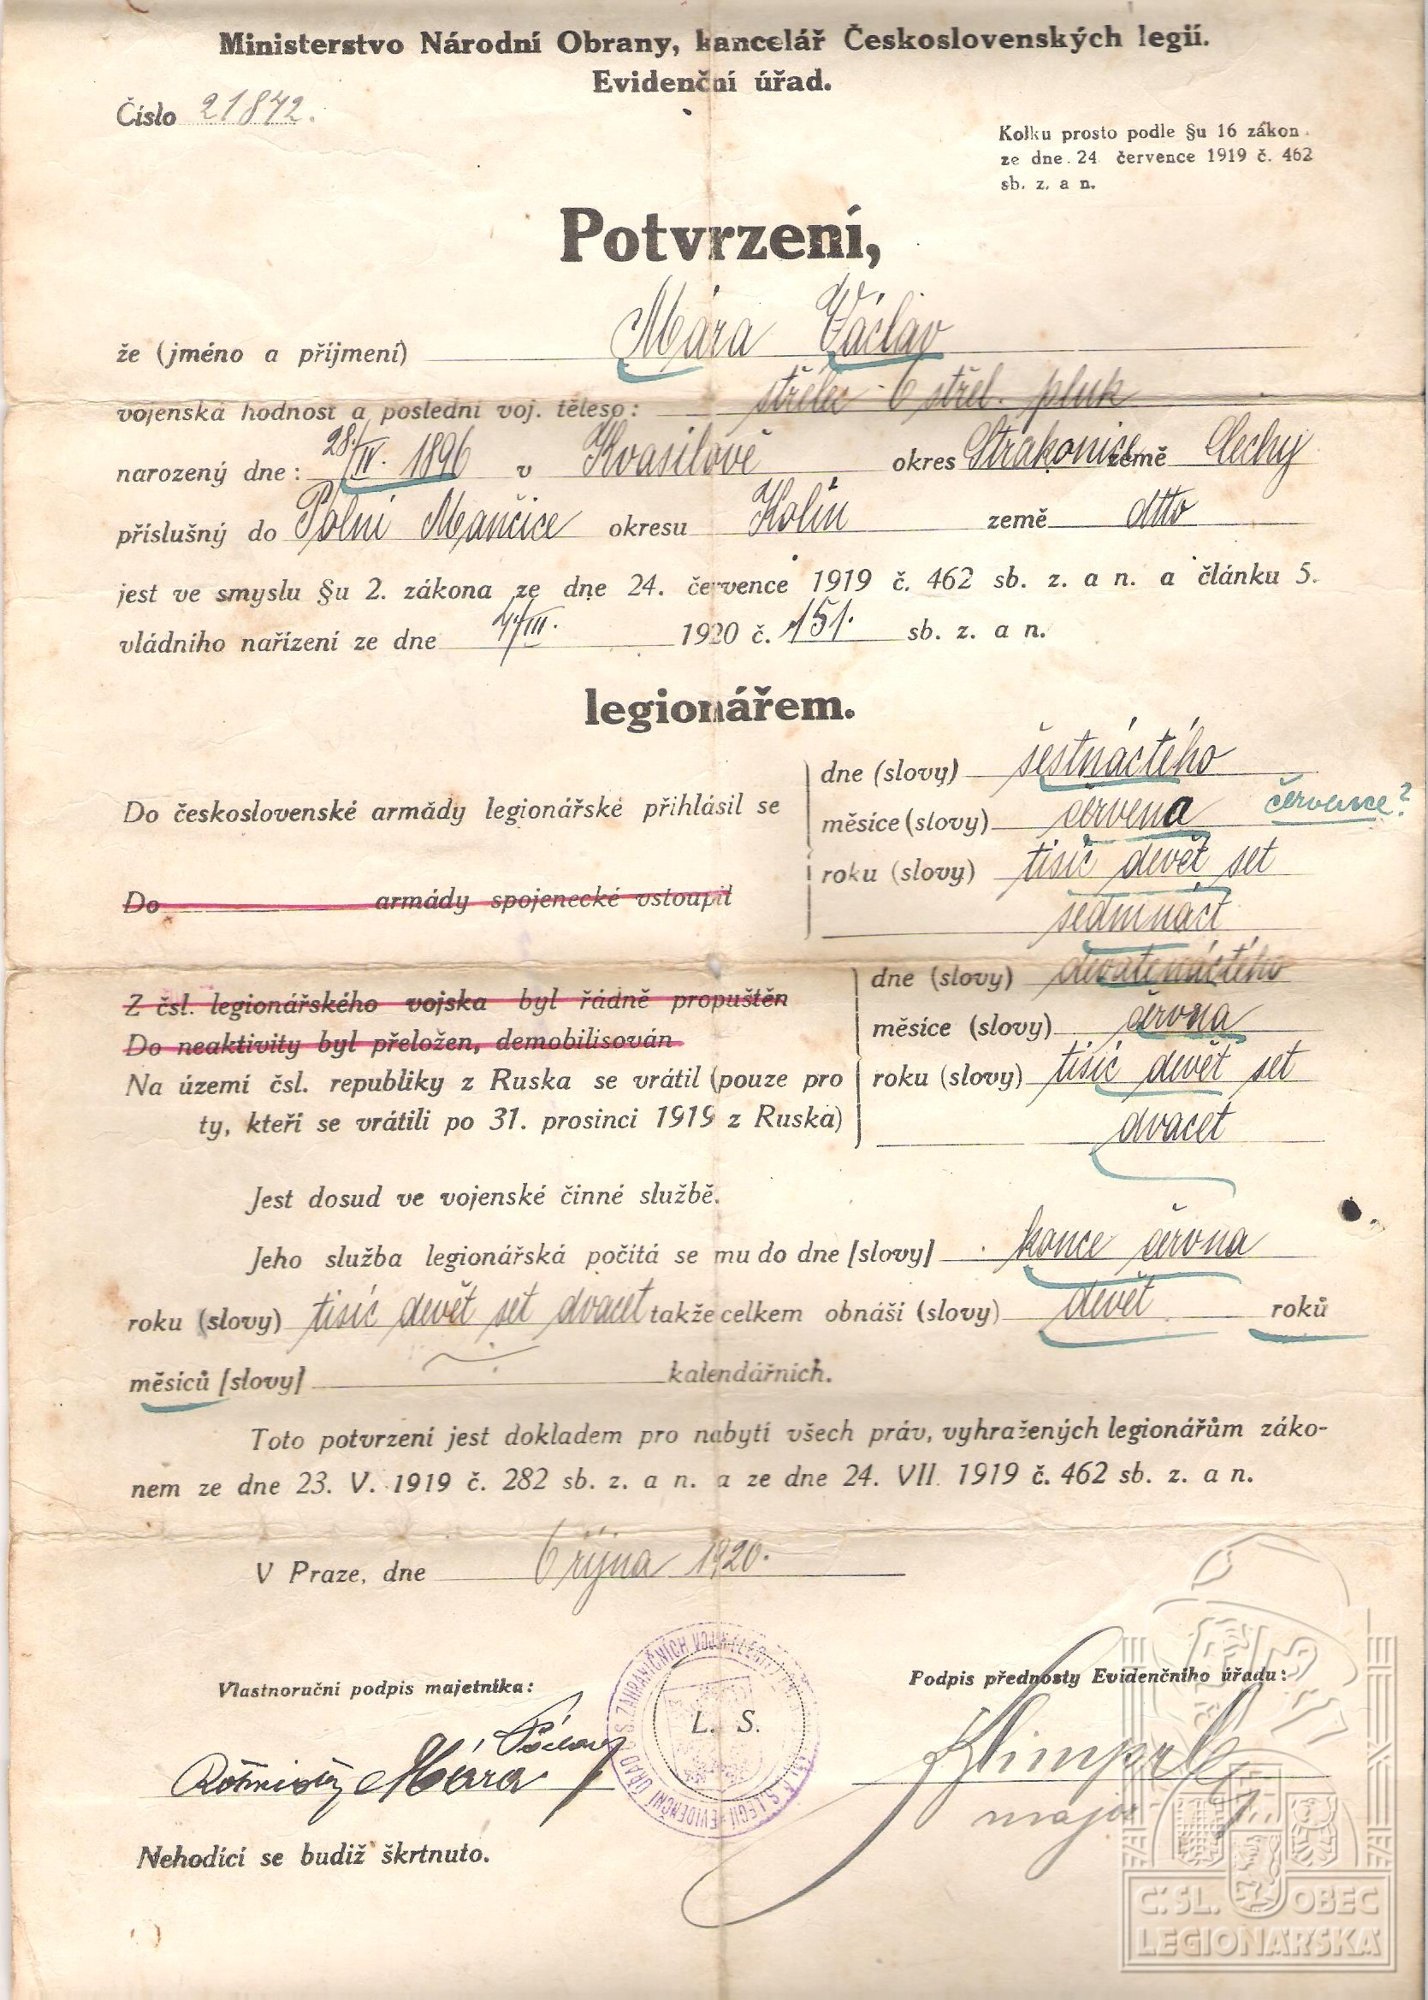 Ministerstvo Národní Obrany, kancelář Československých legií.
Evidenční úřad.
Číslo 21872.
Kolku prosto podle §u 16 zákon.
ze dne 24 července 1919 č. 462
sb. z. a n.
Potvrzení,
že (jméno a příjmení) Mára Václav
vojenská hodnost a poslední voj. těleso: střelec 6 střel. pluk
narozený dne: 28/IV. 1896 v Kvasilově okres Strakonice země Čechy
příslušný do Polní Mančice okresu Kolín země dtto
jest ve smyslu §u 2. zákona ze dne 24. července 1919 č. 462 sb. z. a n. a článku 5.
vládního nařízení ze dne 4/III. 1920 č. 151. sb. z. a n.
legionářem.
Do československé armády legionářské přihlásil se
dne (slovy) šestnáctého
měsíce (slovy) červena července?
roku (slovy) tisíc devět set
sedmnáct
Do armády spojenecké vstoupil
Z čsl. legionářského vojska byl řádně propuštěn
Do neaktivity byl přeložen, demobilisován
Na území čsl. republiky z Ruska se vrátil (pouze pro
ty, kteří se vrátili po 31. prosinci 1919 z Ruska)
dne (slovy) devatenáctého
měsíce (slovy) června
roku (slovy) tisíc devět set
dvacet
Jest dosud ve vojenské činné službě.
Jeho služba legionářská počítá se mu do dne [slovy] konce června
roku (slovy) tisíc devět set dvacet takže celkem obnáší (slovy) devět roků
měsíců [slovy] kalendářních.
Toto potvrzení jest dokladem pro nabytí všech práv, vyhražených legionářům záko-
nem ze dne 23. V. 1919 č. 282 sb. z. a n. a ze dne 24. VII. 1919 č. 462 sb. z. a n.
V Praze, dne 6 října 1920.
Vlastnoruční podpis majetníka:
Podpis přednosty Evidenčního úřadu:
L. S.
Mára Václav
major
Nehodící se budiž škrtnuto.
Č. SL. OBEC
LEGIONÁŘSKÁ